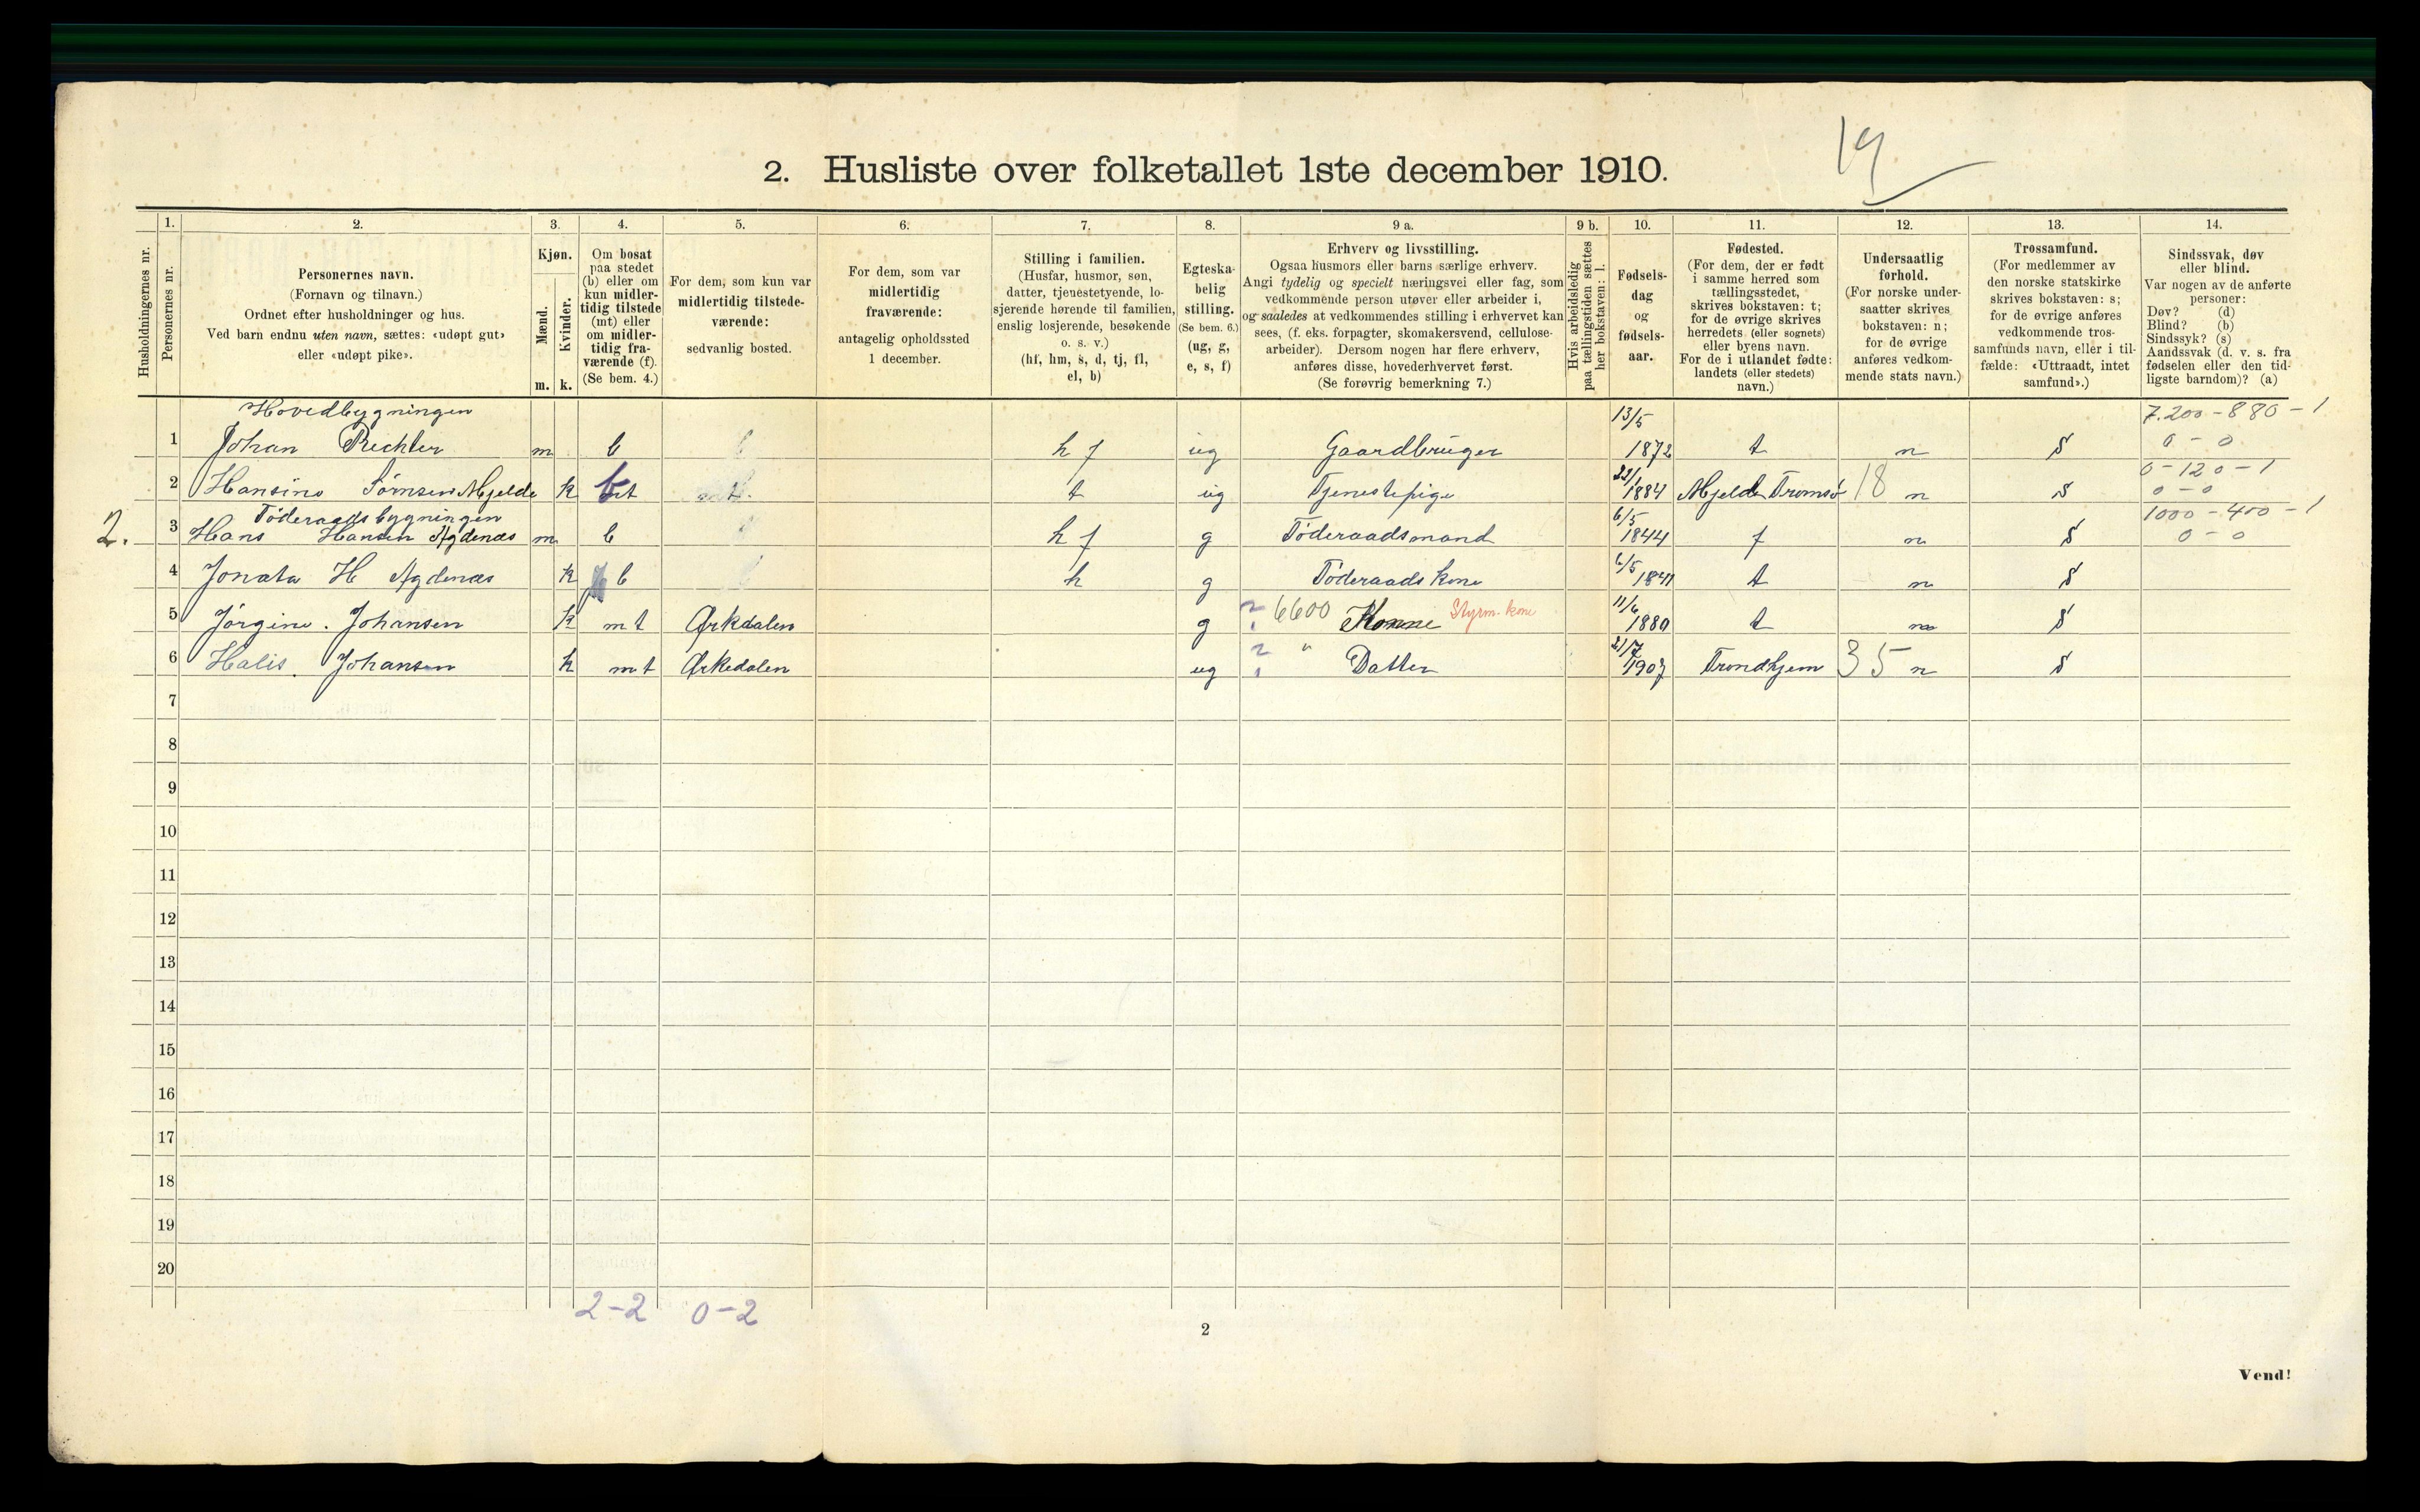 19
2. Husliste over folketallet 1ste december 1910.
Husholdningernes nr.
1. Personernes nr.
2. Personernes navn.
(Fornavn og tilnavn.)
Ordnet efter husholdninger og hus.
Ved barn endnu uten navn, sættes: «udøpt gut»
eller «udøpt pike».
3. Kjøn.
Mænd. m.
Kvinder. k.
4. Om bosat
paa stedet
(b) eller om
kun midler-
tidig tilstede
(mt) eller
om midler-
tidig fra-
værende (f).
(Se bem. 4.)
5. For dem, som kun var
midlertidig tilstede-
værende:
sedvanlig bosted.
6. For dem, som var
midlertidig
fraværende:
antagelig opholdssted
1 december.
7. Stilling i familien.
(Husfar, husmor, søn,
datter, tjenestetyende, lo-
sjerende hørende til familien,
enslig losjerende, besøkende
o. s. v.)
(hf, hm, s, d, tj, fl,
el, b)
8. Egteska-
belig
stilling.
(Se bem. 6.)
(ug, g,
e, s, f)
9 a. Erhverv og livsstilling.
Ogsaa husmors eller barns særlige erhverv.
Angi tydelig og specielt næringsvei eller fag, som
vedkommende person utøver eller arbeider i,
og saaledes at vedkommendes stilling i erhvervet kan
sees, (f. eks. forpagter, skomakersvend, cellulose-
arbeider). Dersom nogen har flere erhverv,
anføres disse, hovederhvervet først.
(Se forøvrig bemerkning 7.)
9 b. Hvis arbeidsledig
paa tællingstiden sættes
her bokstaven: l.
10. Fødsels-
dag
og
fødsels-
aar.
11. Fødested.
(For dem, der er født
i samme herred som
tællingsstedet,
skrives bokstaven: t;
for de øvrige skrives
herredets (eller sognets)
eller byens navn.
For de i utlandet fødte:
landets (eller stedets)
navn.)
12. Undersaatlig
forhold.
(For norske under-
saatter skrives
bokstaven: n;
for de øvrige
anføres vedkom-
mende stats navn.)
13. Trossamfund.
(For medlemmer av
den norske statskirke
skrives bokstaven: s;
for de øvrige anføres
vedkommende tros-
samfunds navn, eller i til-
fælde: «Uttraadt, intet
samfund».)
14. Sindssvak, døv
eller blind.
Var nogen av de anførte
personer:
Døv? (d)
Blind? (b)
Sindssyk? (s)
Aandssvak (d. v. s. fra
fødselen eller den tid-
ligste barndom)? (a)
Hovedbygningen 13/5 7.200-880-1
1 Johan Rechter m b h f ug Gaardbruger 1872 t n S 0-0
2 Hansine Sørnsen Mjelde k b t ug Tjenestepige 22/1 1884 Mjelde Tromsø 18 n S 0-120-1 0-0
Föderaadsbygningen 1000-400-1
2. 3 Hans Hansen Agdenæs m b h f g Föderaadsmand 6/5 1844 f n S 0-0
4 Jonata H Agdenæs k b h g Föderaads kone 6/5 1841 t n S
5 Jørgine. Johansen k mt Ørkdalen g 6600 Konne Styrm. kone 11/6 1880 t n S
6 Halis. Johansen k mt Ørkedalen ug " Datter 21/7 1907 Trondhjem 35 n S
7
8
9
10
11
12
13
14
15
16
17
18
19
20
2-2 0-2
2
Vend!